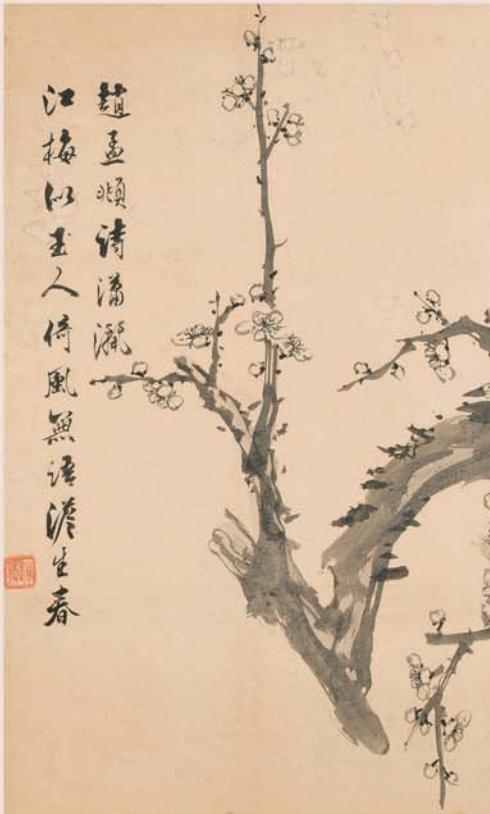 趙孟頫詩瀟灑
江梅似玉人倚風無語澹生春